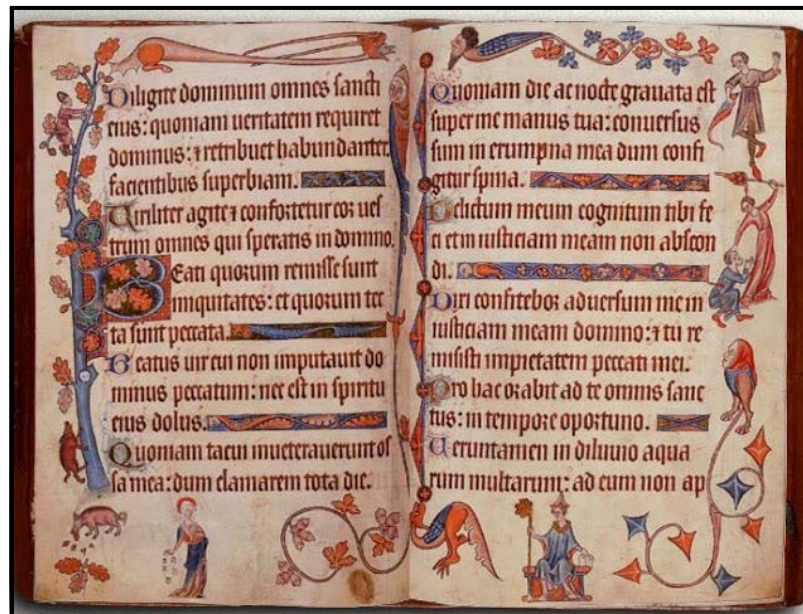 Diligite dominum omnes sancti
eius: quoniam ueritatem requiret
dominus: ⁊ retribuet habundanter
facientibus superbiam.
Uiriliter agite ⁊ confortetur cor ues
trum omnes qui speratis in domino.
Beati quorum remisse sunt
iniquitates: et quorum tec
ta sunt peccata.
Beatus uir cui non imputauit do
minus peccatum: nec est in spiritu
eius dolus.
Quoniam tacui inueterauerunt os
sa mea: dum clamarem tota die.
Quoniam die ac nocte grauata est
super me manus tua: conuersus
sum in erumpna mea dum confi
gitur spina.
Delictum meum cognitum tibi fe
ci et in iusticiam meam non abscon
di.
Dixi confitebor aduersum me in
iusticiam meam domino: ⁊ tu re
misisti impietatem peccati mei.
Pro hac orabit ad te omnis sanc
tus: in tempore oportuno.
Ueruntamen in diluuio aqua
rum multarum: ad eum non ap